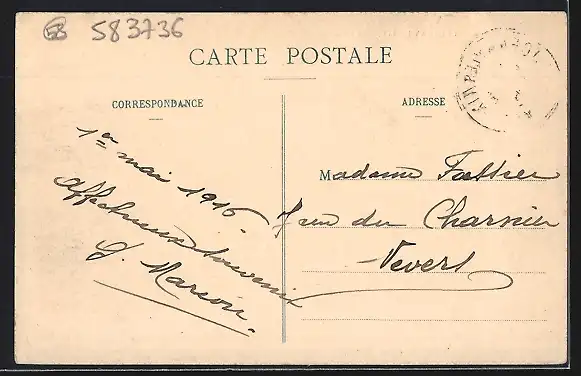 583736
CARTE POSTALE
CORRESPONDANCE
ADRESSE
1er mai 1916.
Affectueux souvenir
G. Marson.
Madame Fattier
7 rue du Charnier
Nevers